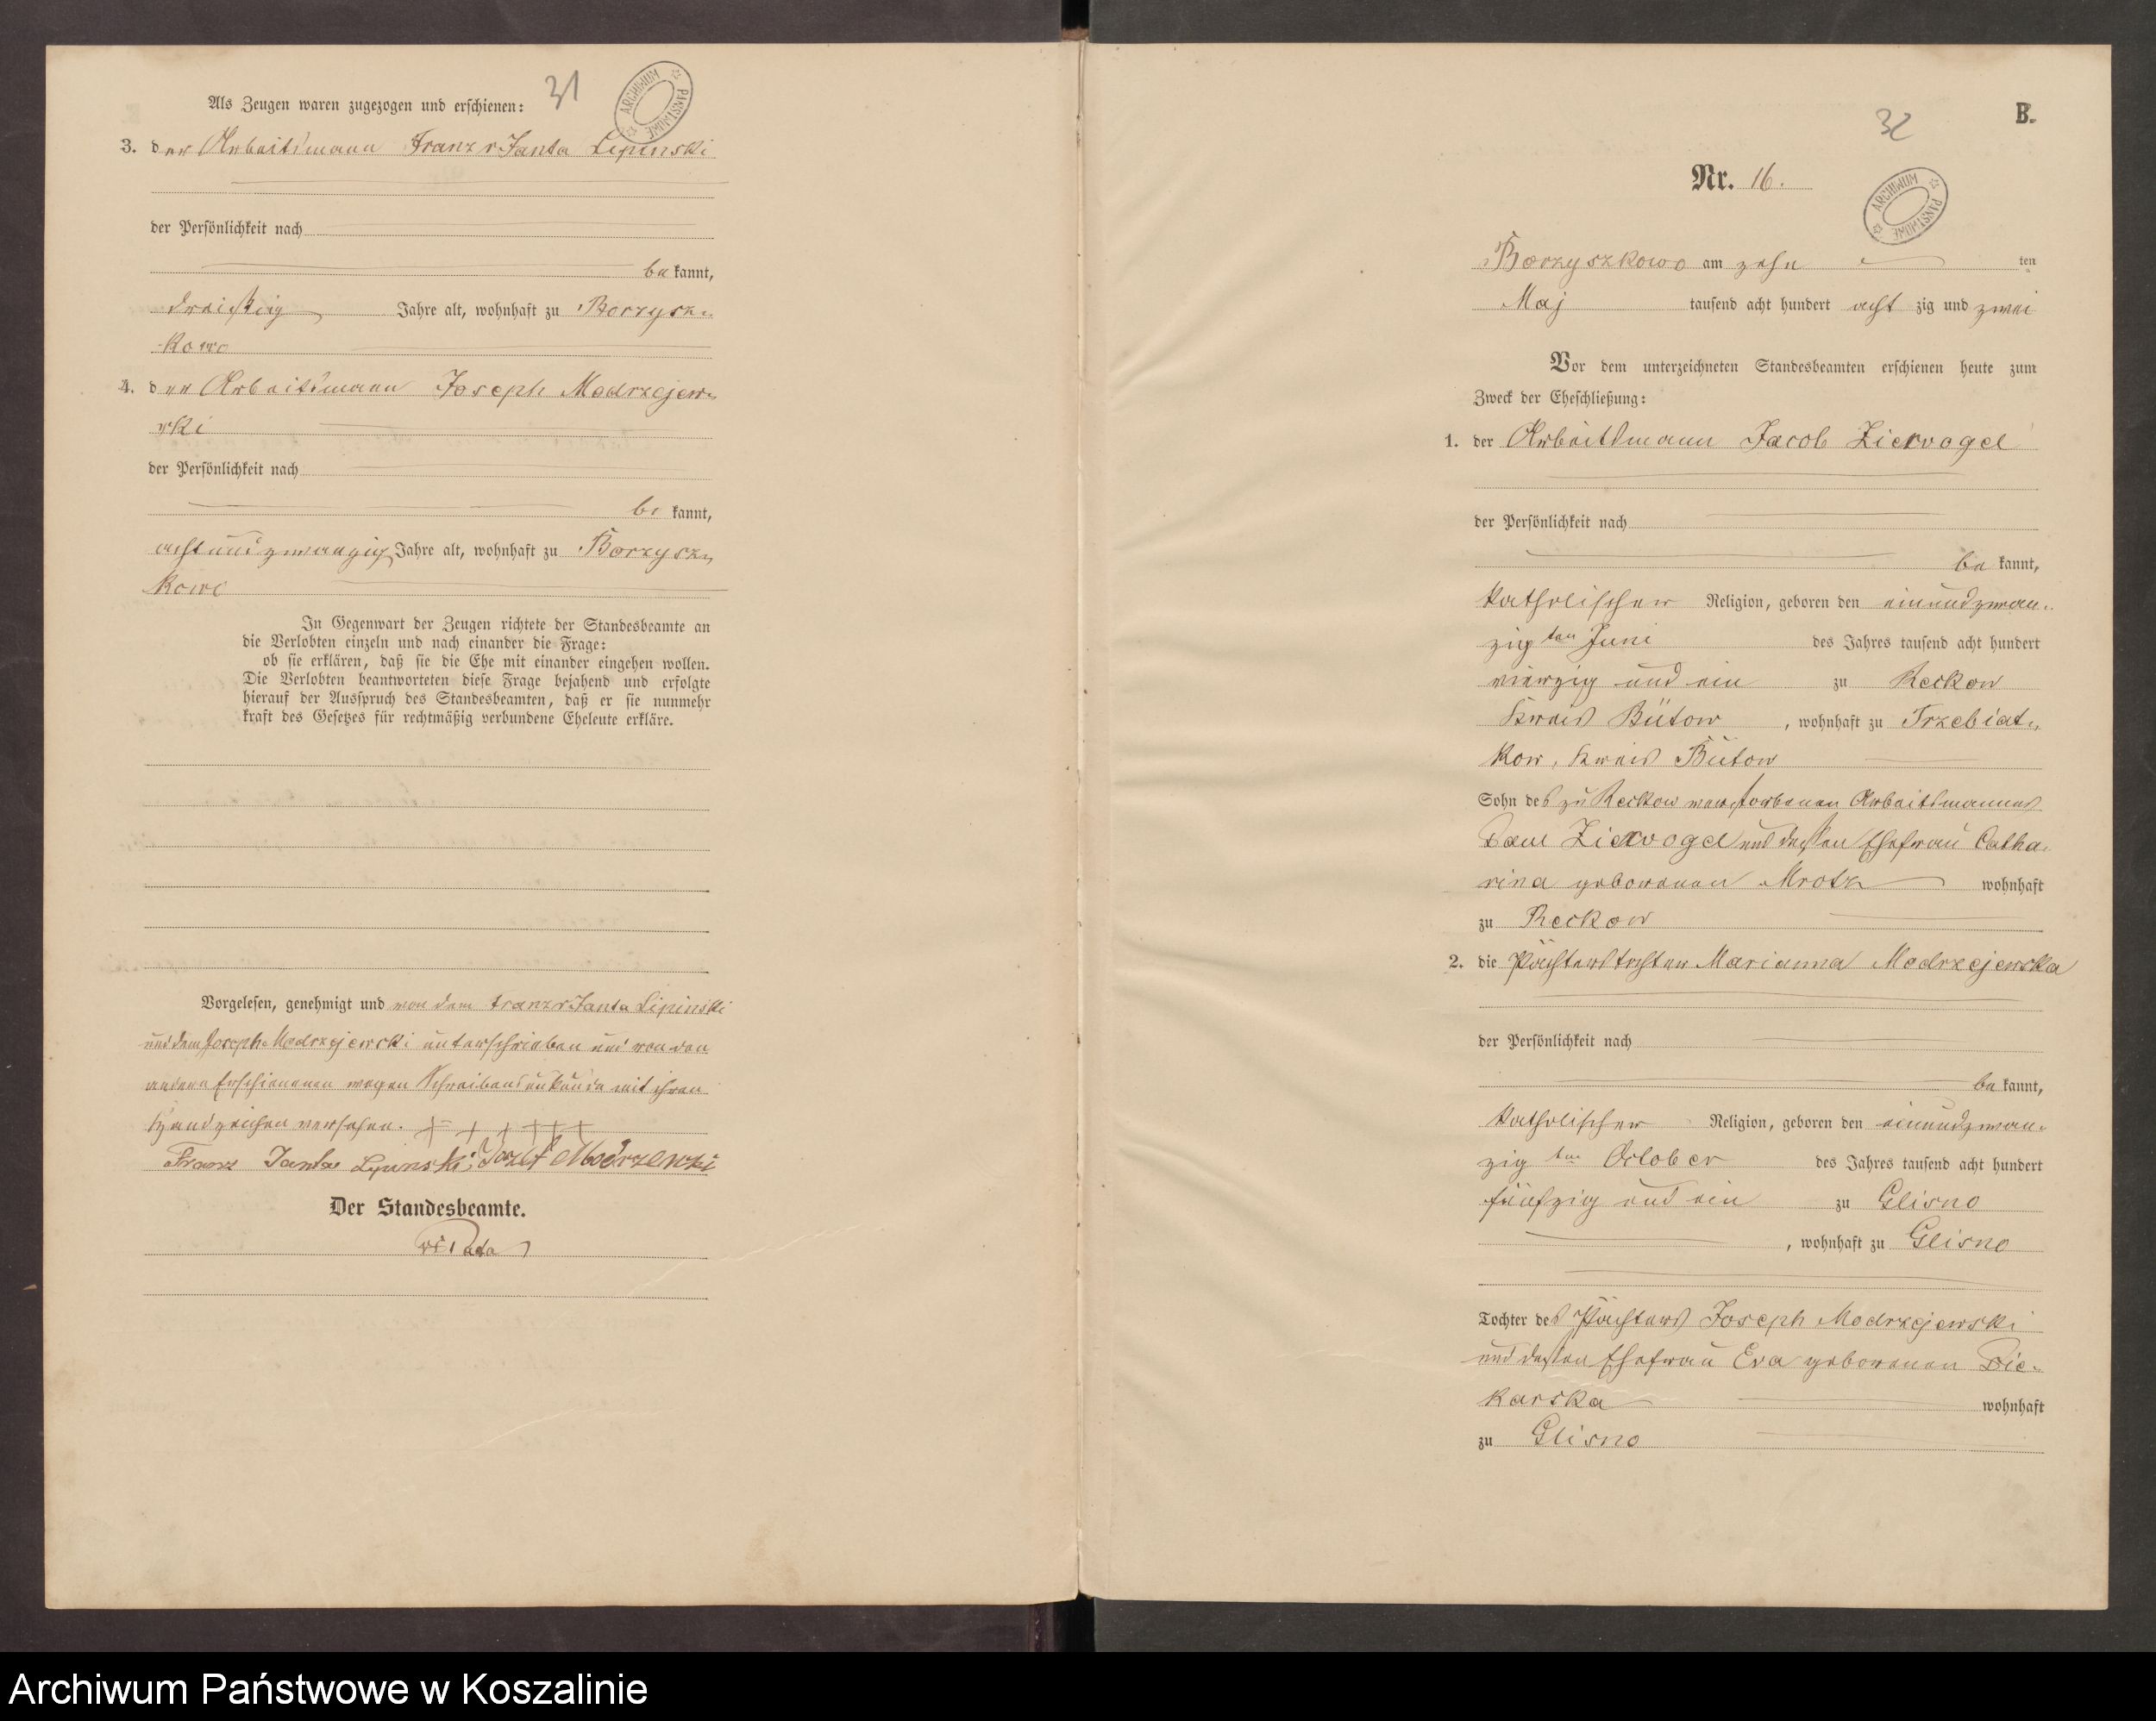 31
ARCHIWUM PAŃSTWOWE
Als Zeugen waren zugezogen und erschienen:
3. der Arbeitsmann Franz v Janta Lipinski
der Persönlichkeit nach
be kannt,
dreißig Jahre alt, wohnhaft zu Borzysz-
kowo
4. der Arbeitsmann Joseph Modrzejew-
ski
der Persönlichkeit nach
be kannt,
achtundzwanzig Jahre alt, wohnhaft zu Borzysz-
kowo
In Gegenwart der Zeugen richtete der Standesbeamte an
die Verlobten einzeln und nach einander die Frage:
ob sie erklären, daß sie die Ehe mit einander eingehen wollen.
Die Verlobten beantworteten diese Frage bejahend und erfolgte
hierauf der Ausspruch des Standesbeamten, daß er sie nunmehr
kraft des Gesetzes für rechtmäßig verbundene Eheleute erkläre.
Vorgelesen, genehmigt und von dem Franz v Janta Lipinski
und dem Joseph Modrzejewski unterschrieben und von den
andern Erschienenen wegen Schreibensunkunde mit ihren
Handzeichen versehen. + + + + + +
Franz Janta Lipinski Jozef
Der Standesbeamte.
B.
32
Nr. 16.
ARCHIWUM PAŃSTWOWE
Borzyszkowo am zehn ten
Maj tausend acht hundert acht zig und zwei
Vor dem unterzeichneten Standesbeamten erschienen heute zum
Zweck der Eheschließung:
1. der Arbeitsmann Jacob Ziervogel
der Persönlichkeit nach
be kannt,
katholischer Religion, geboren den einundzwan-
zig ten Juni des Jahres tausend acht hundert
vierzig und ein zu Reckow
Kreis Bütow, wohnhaft zu Trzebiat-
kow, Kreis Bütow
Sohn des zu Reckow verstorbenen Arbeitsmannes
Paul Ziervogel und dessen Ehefrau Catha-
rina geborenen Mrotz wohnhaft
zu Reckow
2. die Pächterstochter Marianna Modrzejewska
der Persönlichkeit nach
be kannt,
katholischer Religion, geboren den einundzwan-
zig ten October des Jahres tausend acht hundert
fünfzig und ein zu Glisno
, wohnhaft zu Glisno
Tochter des Pächters Joseph Modrzejewski
und dessen Ehefrau Eva geborenen Pie-
karska wohnhaft
zu Glisno
Archiwum Państwowe w Koszalinie